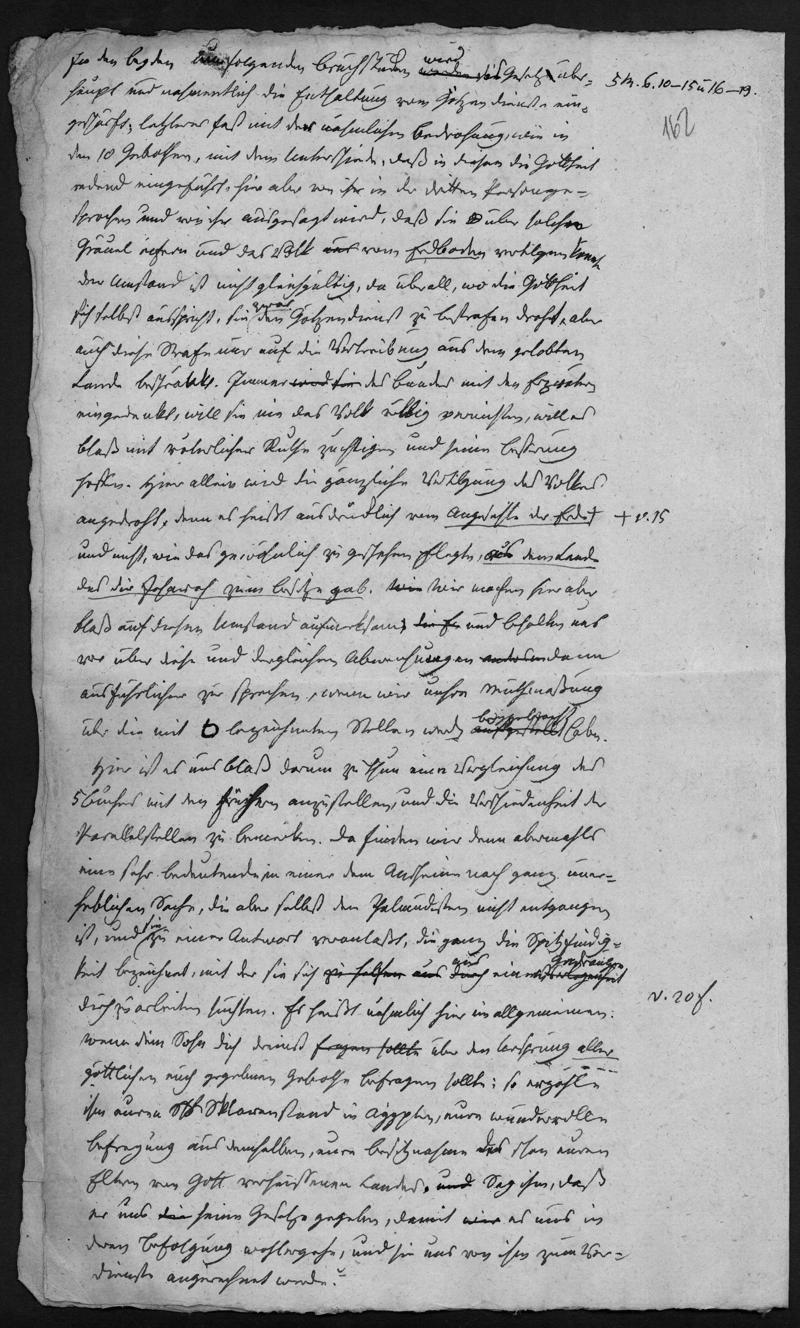 In den beyden nun folgenden Bruchstücken wird das Gesetz über=
haupt und nahmentlich die Enthaltung vom Götzendienste ein=
geschärft, letzteres fast mit der nähmlichen Bedrohung, wie in
den 10 Gebothen, mit dem Unterschiede, daß in diesen die Gottheit
redend eingeführt, hier aber von ihr in der dritten Person ge=
sprochen und von ihr ausgesagt wird, daß sie über solchen
Gräuel eifern und das Volk aus vom Erdboden vertilgen könnte
Der Umstand ist nicht gleichgültig, da überall, wo die Gottheit
sich selbst ausspricht, sie zwar den Götzendienst zu bestrafen droht, aber
auch diese Strafe nur auf die Vertreibung aus dem gelobten
Lande beschränkt. Immer wird sie des Bundes mit den Erzvätern
eingedenkt, will sie nie das Volk völlig vernichten, will es
bloß mit väterlicher Ruthe züchtigen und seine Besserung
hoffen. Hier allein wird die gänzliche Vertilgung des Volkes
angedroht, denn es heißt ausdrücklich vom Angesichte der Erde +
und nicht, wie das gewöhnlich zu geschehen pflegte, aus dem Lande
das dir Jehovah zum Besitze gab. Wir machen hier aber
bloß auf diesen Umstand aufmerksam, und behalten uns
vor über diese und dergleichen Abweichungen dann
ausführlicher zu sprechen, wenn wir unsre Muthmaßung
über die mit bezeichneten Stellen werden haben.
Hier ist es uns bloß darum zu thun eine Vergleichung des
5 Buches mit den frühern anzustellen, und die Verschiedenheit der
Parallelstellen zu bemerken. Da finden wir denn abermahls
eine sehr bedeutende in einer dem Anscheine nach ganz uner=
heblichen Sache, die aber selbst den Talmudisten nicht entgangen
ist, und sie zu einer Antwort veranlaßt, die ganz die Spitzfindig=
keit bezeichnet, mit der sie sich aus
durchzuarbeiten suchten. Es heißt nähmlich hier im allgemeinen:
wenn dein Sohn dich dereinst fragen sollte über den Ursprung aller
göttlichen euch gegebenen Gebothe befragen sollte; so erzähle
ihm euren Sklavenstand in Ägypten, eure wundervolle
Befreyung aus demselben, eure Besitznahme des schon euren
Eltern von Gott verheissenen Landes, und Sag ihm, daß
er uns die seine Gesetze gegeben, damit es uns in
deren Befolgung wohlergehe, und sie uns von ihm zum Ver=
dienste angerechnet werde.
5 M. 6. 10–15 u 16–19.
162
+ v. 15
v. 20 f.